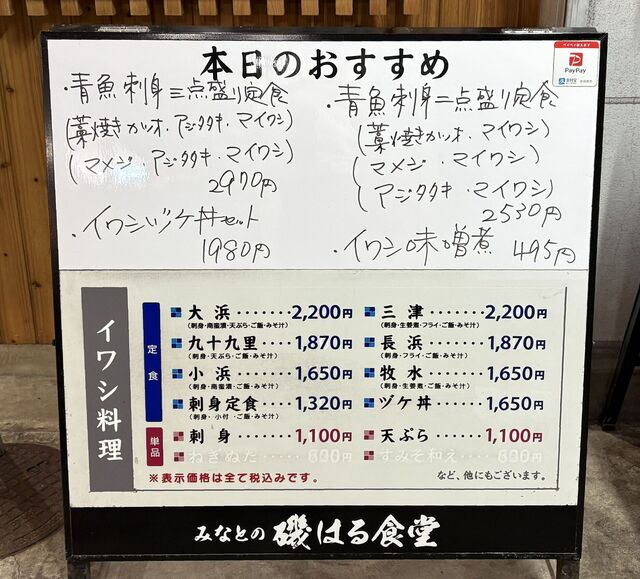 本日のおすすめ
PayPay
・青魚刺身三点盛り定食
(藁焼きカツオ・アジタタキ・マイワシ)
(マメジ・アジタタキ・マイワシ)
2970円
・イワシヅケ丼セット
1980円
・青魚刺身二点盛り定食
(藁焼きカツオ、マイワシ)
(マメジ、マイワシ)
(アジタタキ・マイワシ)
2530円
・イワシ味噌煮 495円
イワシ料理
定食
大浜・・・・・・・2,200円
(刺身・南蛮漬・天ぷら・ご飯・みそ汁)
九十九里・・・・・1,870円
(刺身・天ぷら・ご飯・みそ汁)
小浜・・・・・・・1,650円
(刺身・南蛮漬・ご飯・みそ汁)
刺身定食・・・・・1,320円
(刺身・小付・ご飯・みそ汁)
三津・・・・・・・2,200円
(刺身・生姜煮・フライ・ご飯・みそ汁)
長浜・・・・・・・1,870円
(刺身・フライ・ご飯・みそ汁)
牧水・・・・・・・1,650円
(刺身・生姜煮・ご飯・みそ汁)
ヅケ丼・・・・・・1,650円
単品
刺身・・・・・・・1,100円
ねぎぬた・・・・・
天ぷら・・・・・・1,100円
すみそ和え・・・・
※表示価格は全て税込みです。
など、他にもございます。
みなとの 磯はる食堂